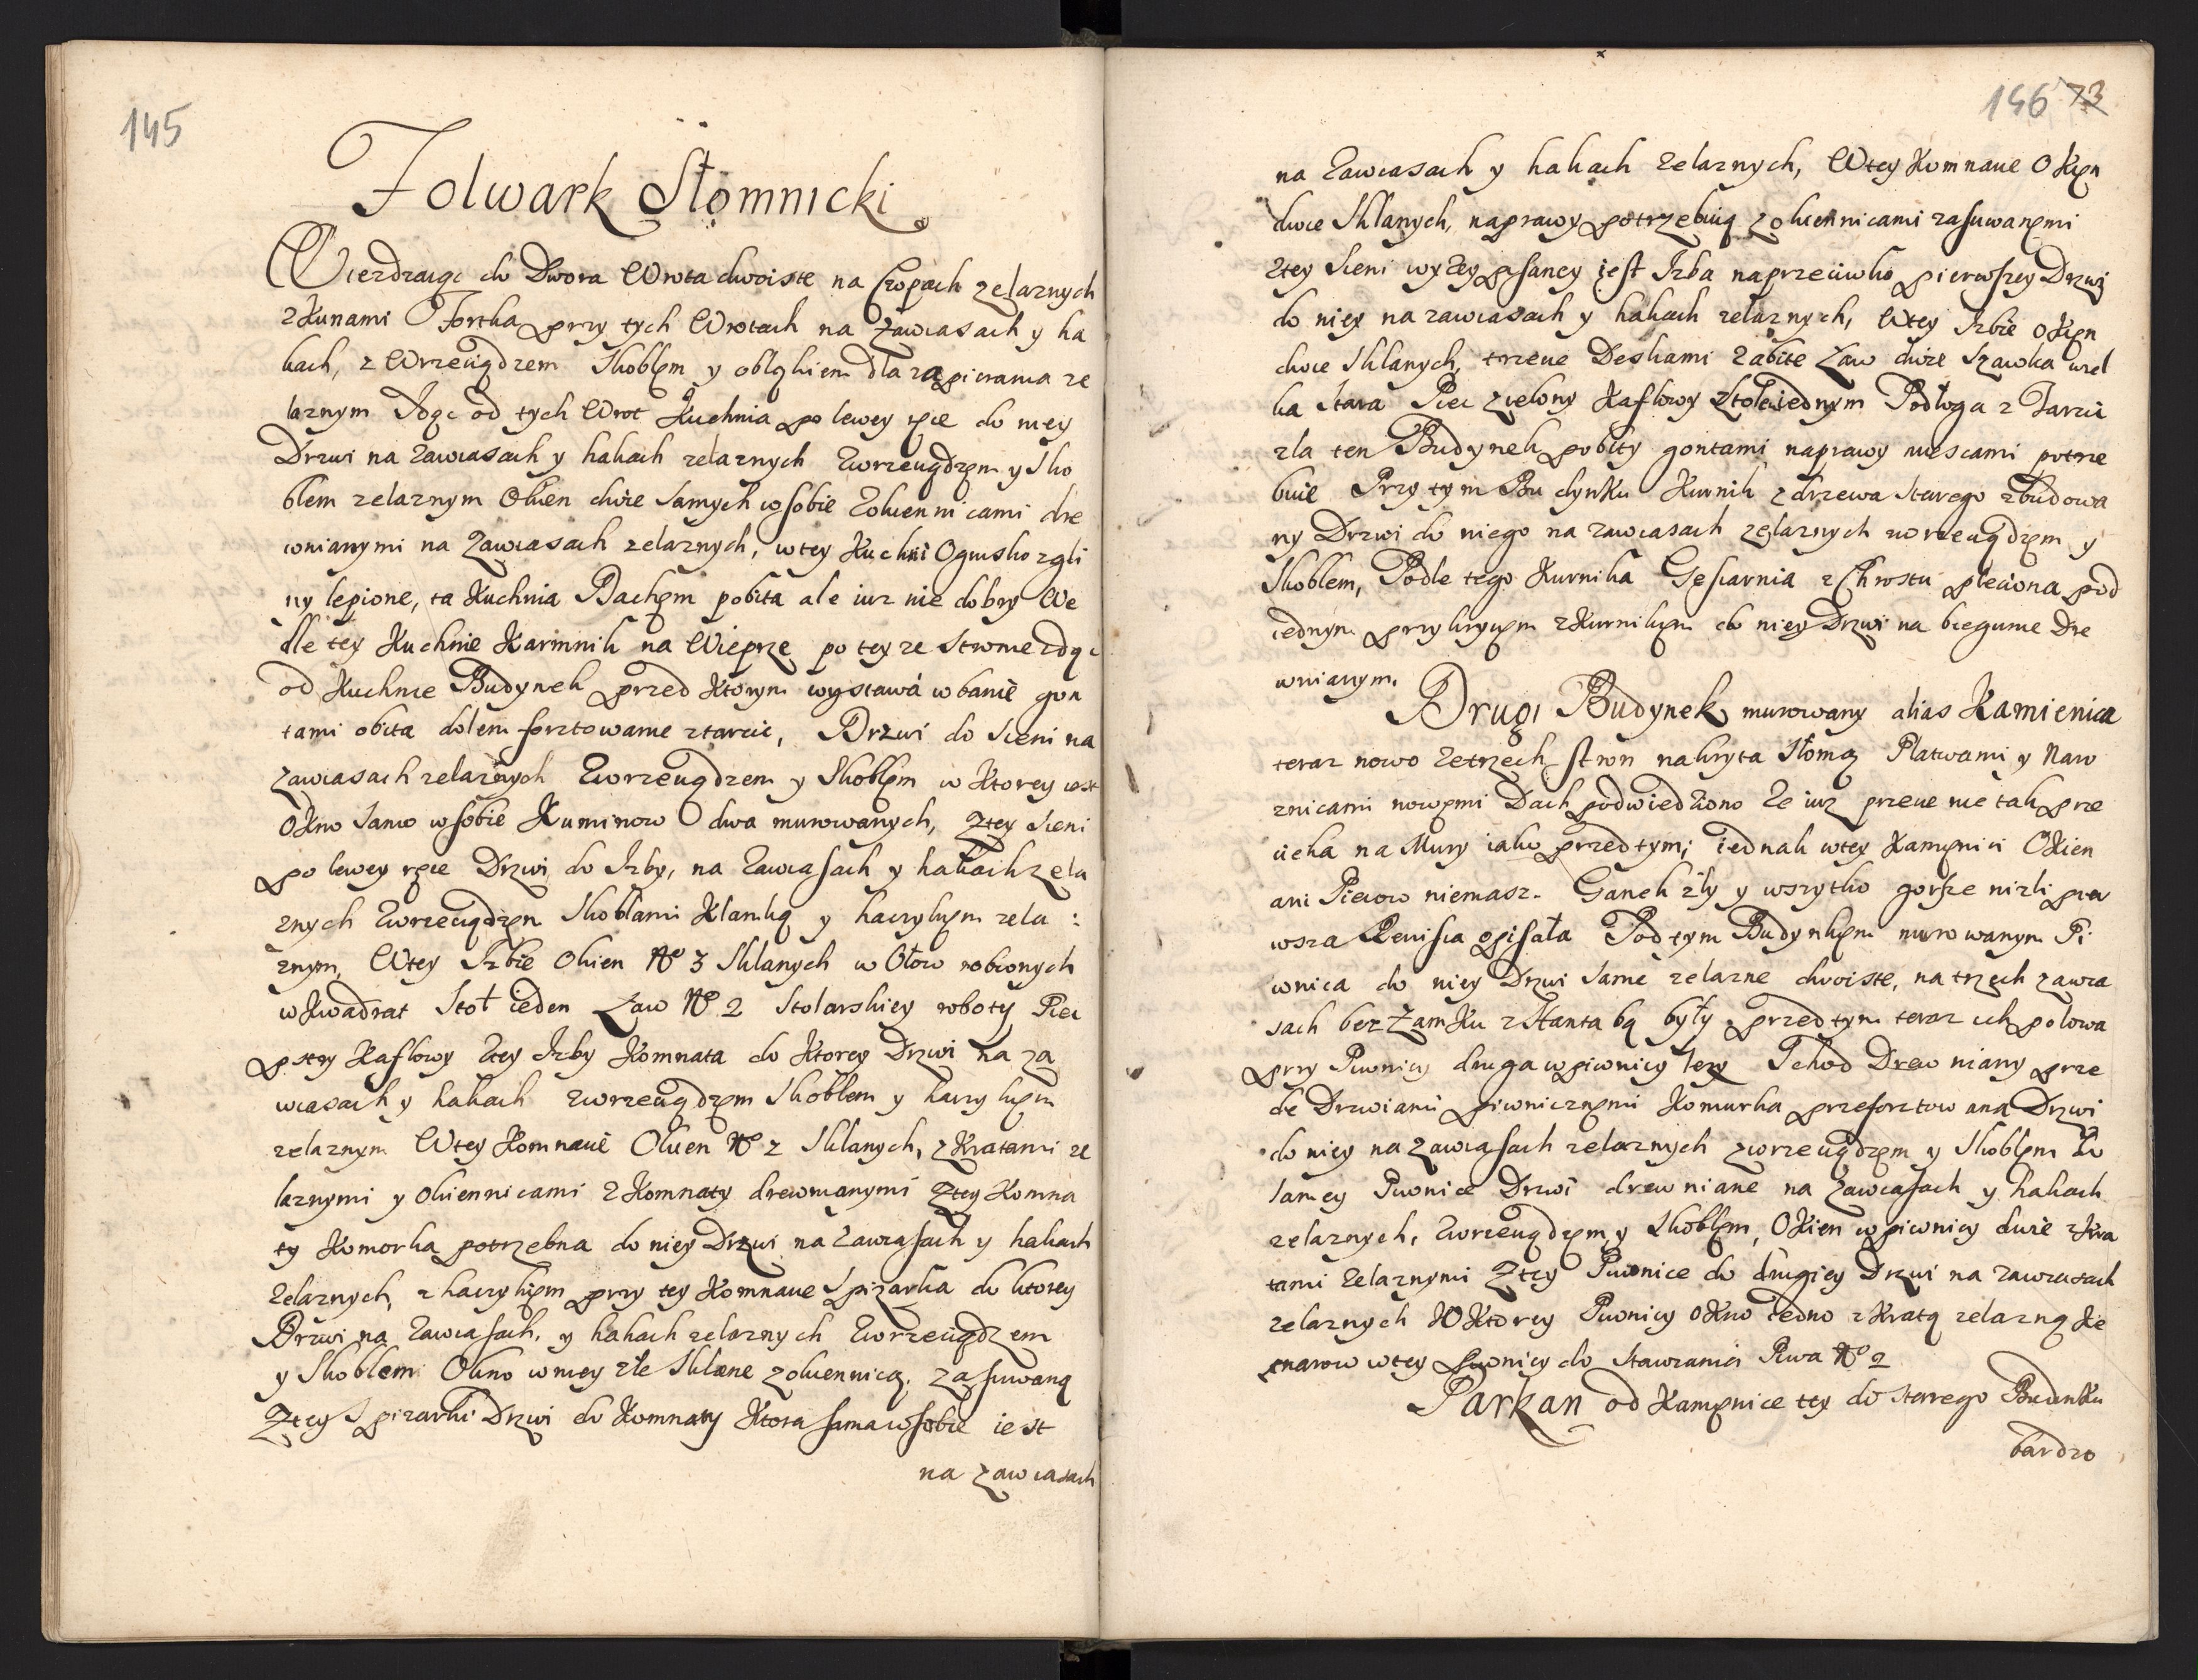 145
Folwark Słomnicki
Wiezdzaiąc do Dwora Wrota dwoiste na Czopach zelaznych
z Kunami Fortka przy tych Wrotach na Zawiasach y ha
kach, z Wrzeciądzem Skoblem y obląkiem dla zapierania ze
laznym Idąc od tych Wrot Kuchnia po lewey ręce do niey
Drzwi na Zawiasach y hakach zelaznych Zwrzeciądzem y Sko
blem zelaznym Okien dwie Samych w sobie Zokiennicami dre
wnianymi na Zawiasach zelaznych, w tey Kuchni Ognisko z gli
ny lepione, ta Kuchnia Dachem pobita ale iuz nie dobry We
dle tey Kuchnie Karmnik na Wieprze po tey ze stronie idąc
od Kuchnie Budynek przed Ktorym wystawa w banie gon
tami obita dolem forztowanie z tarcic, Drzwi do Sieni na
zawiasach zelaznych Zwrzeciądzem y Skoblem w Ktorey iest
Okno Samo w sobie Kuminow dwa murowanych, Ztey Sieni
po lewey ręce Drzwi do Izby, na Zawiasach y hakach zela
znych Zwrzeciądzem Skoblami Klamką y haczykiem zela:
znym, Wtey Izbie Okien No 3 Sklanych w Ołow robionych
w Kwadrat Stoł ieden Ław No 2 Stolarskiey roboty Piec
pstry Kaflowy Ztey Izby Komnata do Ktorey Drzwi na za
wiasach y hakach zwrzeciądzem Skoblem y haczykiem
zelaznym Wtey Komnacie Okien No 2 Sklanych, z Kratami ze
laznymi y okiennicami z Komnaty drewnianymi Ztey Komna
ty Komorka potrzebna do niey Drzwi na Zawiasach y hakach
Zelaznych, z haczykiem przy tey Komnacie Spizarka do ktorey
Drzwi na Zawiasach, y hakach zelaznych Zwrzeciądzem
y Skoblem Okno w niey złe Sklane zokiennicą, zasuwaną
Ztey Spizarki Drzwi do Komnaty Ktora sama w sobie iest
na zawiasach
146 73
na Zawiasach y hakach Zelaznych, Wtey Komnacie Okien
dwie Sklanych, naprawy potrzebuią zokiennicami zasuwanemi
Ztey Sieni wyzey pisaney iest Izba naprzeciwko pierwszey Drzwi
do niey na zawiasach y hakach zelaznych, Wtey Izbie Okien
dwie Sklanych, trzecie Deskami Zabite Ław dwie Szawka wiel
ka stara Piec zielony Kaflowy Ztołem iednym Podłoga z Tarcic
zła ten Budynek pobity gontami naprawy miescami potrze
buie Przy tym Budynku Kurnik z drzewa Starego zbudowa
ny Drzwi do niego na zawiasach zelaznych zwrzeciądzem y
Skoblem, Podle tego Kurnika Gęsiarnia z Chrostu pleciona pod
iednym przykryciem z Kurnikiem do niey Drzwi na biegunie Dre
wnianym.
Drugi Budynek murowany alias Kamienica
teraz nowo Zetrzech stron nakryta Słomą Płatwami y Naro
znicami nowemi Dach podwiedziono Ze iuz przecie nie tak prze
cieka na Mury iako przed tym, iednak wtey Kamienici Okien
ani Piecow niemasz. Ganek zły y wszytko gorsze nizli pier
wsza Rewisia opisała Pod tym Budynkiem murowanym Pi
wnica do niey Drzwi Same zelazne dwoiste, na trzech zawia
sach bez Zamku z Hantabą były przed tym teraz ich połowa
przy Piwnicy druga w piwnicy lezy Schod Drewniany prze
de Drzwiami piwnicznemi Komurka przeforztowana Drzwi
do niey na zawiasach zelaznych zwrzeciądzem y Skoblem Do
samey Piwnice Drzwi drewniane na zawiasach y hakach
zelaznych, Zwrzeciądzem y Skoblem, Okien w piwnicy dwie z Kra
tami Zelaznymi Ztey Piwnice do drugiey Drzwi na zawiasach
zelaznych W Ktorey Piwnicy okno iedno z Kratą zelazną Kie
tnarow wtey piwnicy do stawiania Piwa No 2
Parkan od Kamienice tey do starego Budinku
bardzo